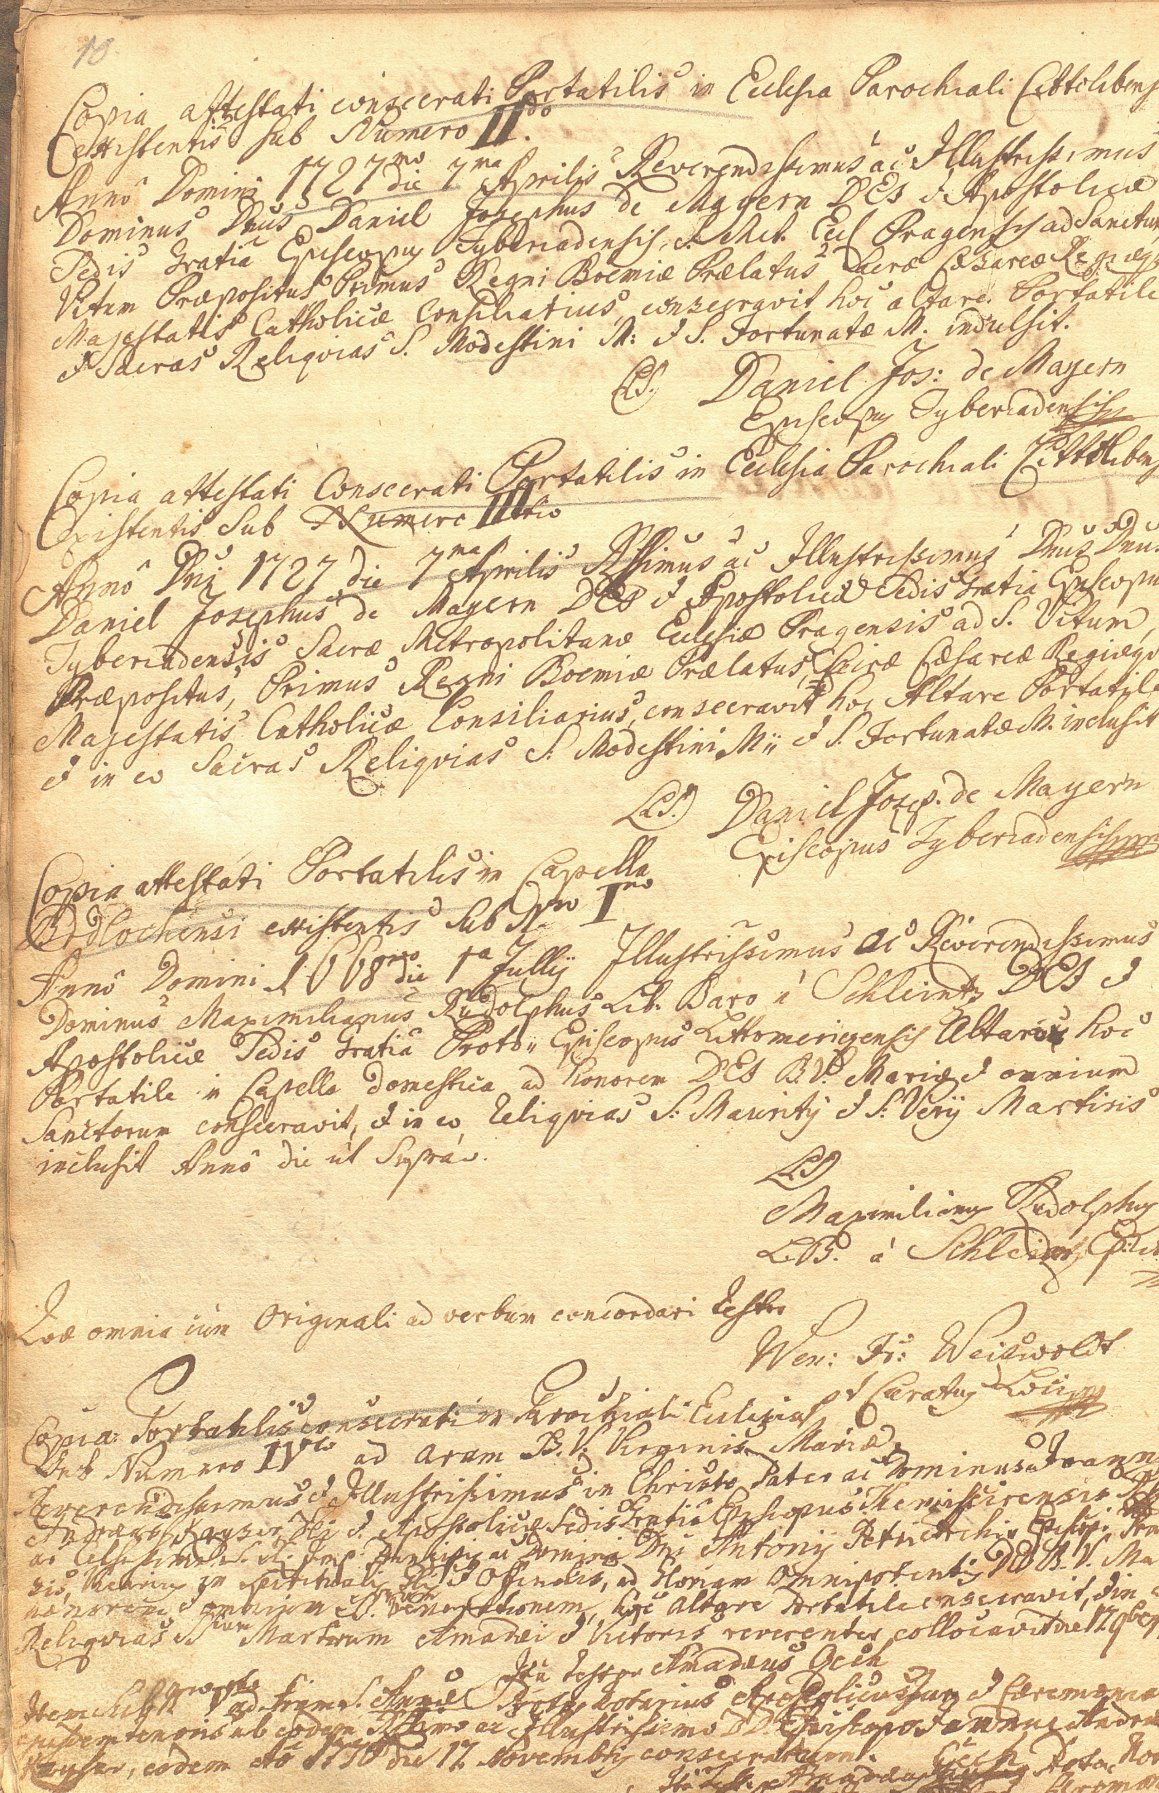 10.
Copia attestati consecrati Portatilis in Ecclesia Parochiali Cittolibens
existentis sub Numero II.do
Anno Domini 1727mo die 7ma Aprilis Reverendissimus ac Illustrissimus
Dominus Dnus Daniel Josephus de Mayern DEI & Apostolicæ
Sedis Gratia Episcopus Tyberiadensis, S. Met. Eccl Pragensis ad Sanctum
Vitum Præpositus Primus Regni Boemiæ Prælatus Sacræ Cæsareæ Regiæq
Majestatis Catholicæ Consiliarius, consecravit hoc altare Portatile
& Sacras Reliqvias S. Modestini M: & S. Fortunatæ M. indulsit.
(LS.) Daniel Jos: de Mayern
Episcopus Tyberiadensis
Copia attestati Consecrati Portatilis in Ecclesia Parochiali Cittolibens
Existentis Sub Numero III tio
Anno Dni 1727 die 7ma Aprilis Rssimus ac Illustrissimus Dnus Dnus
Daniel Josephus de Mayern DEI & Apostolicæ Sedis Gratia Episcopus
Tyberiadensis Sacræ Metropolitanæ Ecclesiæ Pragensis ad S. Vitum,
Præpositus, Primus Regni Boemiæ Prælatus, Sacræ Cæsareæ Regiæqv
Majestatis Catholicæ Consiliarius, consecravit hoc Altare Portatile
& in eo Sacras Reliqvias S. Modestini M: & S. Fortunatæ M. inclusit
(LS.) Daniel Josep. de Mayern
Episcopus Tyberiadensis
Copia attestati Portatilis in Capella
existentis sub Nro I mo
Anno Domini 1668 die 1a Julij Illustrissimus ac Reverendissimus
Dominus Maximilianus Rudolphus Lib. Baro a Schleintz DEI &
Apostolicæ Sedis Gratia Proto: Episcopus Littomericensis Altare hoc
Portatile in Capella domestica ad honorem DEI B.V. Mariæ & omnium
Sanctorum consecravit, & in eo Reliqvias S: Mauritij & S: Verij Martiris
inclusit Anno die ut Supra.
(LS)
Maximilianus Rudolphus
L.B. a Schleinz
Hæc omnia cum Originali ad verbum concordari testor
Wen: Weiswoldt
Curatus Loci
Copia Portatilis consecrati in Parochiali Ecclesia
Sub Numero IV to ad aram B. V: Virginis Mariæ
Reverendissimus & Illustrissimus in Christo Pater ac Dominus Joannes
Andreas Kayser, Dei & Apostolicæ Sedis Gratia Episcopus
ac Dni Antonij
in Spiritualibus & Officialis, ad Gloriam Omnipotentis DEI B. V. Ma
honorem & omnium venerationem, hoc altare Portatile consecravit, & in e
Reliqvias SS. Martirum Amadei & Victoris reverenter collocavit die 17. 9bris
Ita testor Amadæus Cech
Item ad Aram S. Annæ Protonotarius Apostolicus & Ceremonia
ejusdem tenoris ab eodem Rssimo ac Illustrissimo DD. Episcopo Joanne Andrea
Kayser, eodem die 17 Novembris consecratum.
Ita Testor Amadæus Cech